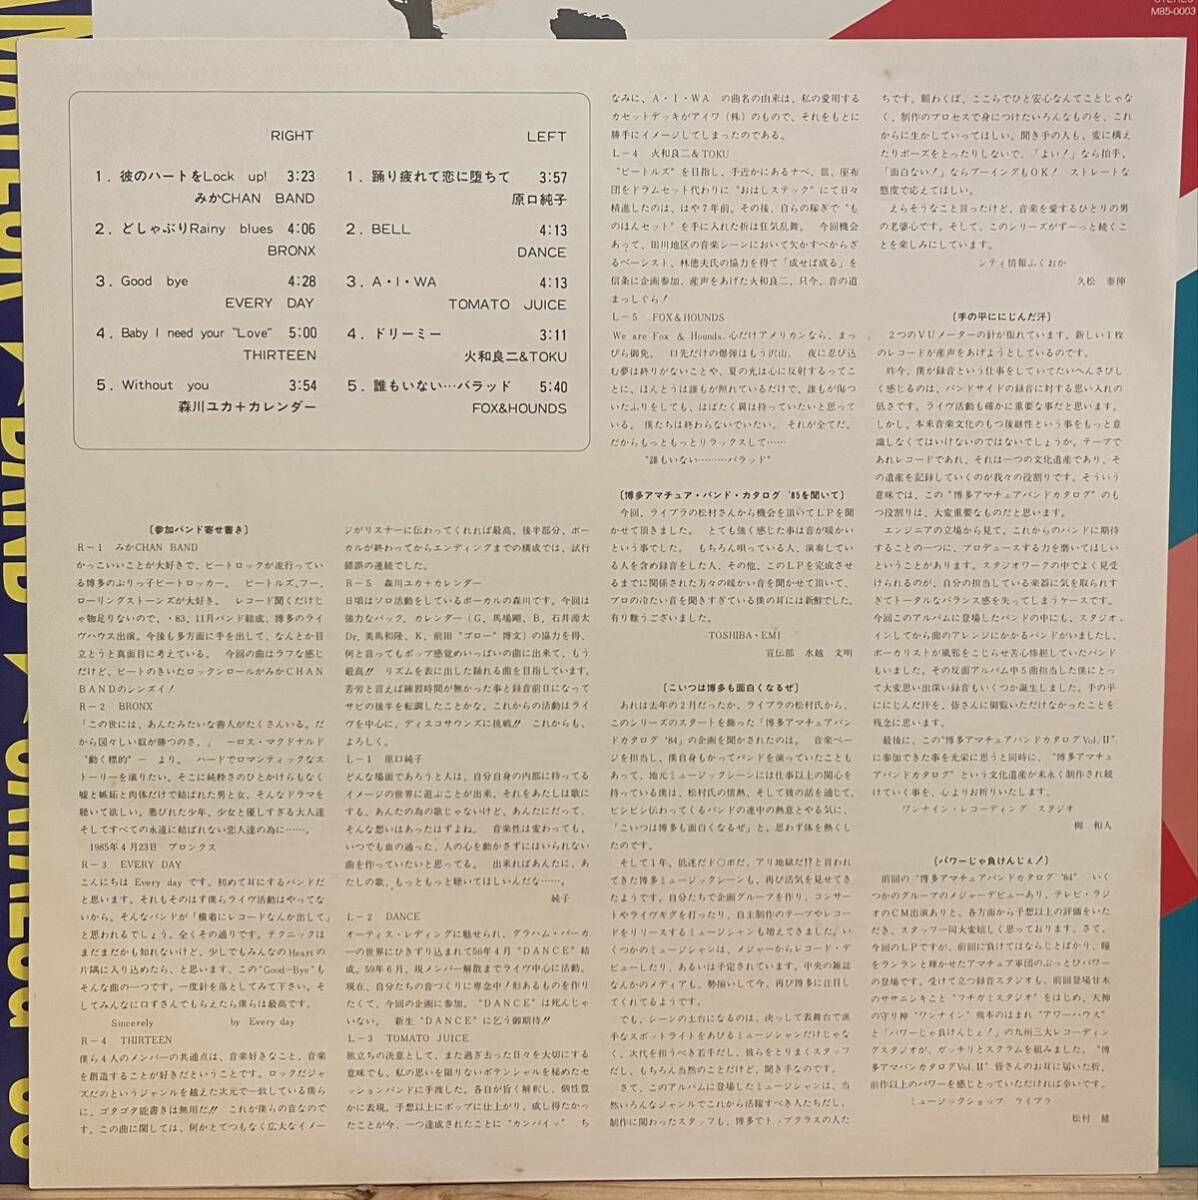 STEREO
M85-0003
RIGHT
1．彼のハートをLock up! 3:23
みかCHAN BAND
2．どしゃぶりRainy blues 4:06
BRONX
3．Good bye 4:28
EVERY DAY
4．Baby I need your “Love” 5:00
THIRTEEN
5．Without you 3:54
森川ユカ＋カレンダー
LEFT
1．踊り疲れて恋に堕ちて 3:57
原口純子
2．BELL 4:13
DANCE
3．A・I・WA 4:13
TOMATO JUICE
4．ドリーミー 3:11
火和良二&TOKU
5．誰もいない…バラッド 5:40
FOX&HOUNDS
〔参加バンド寄せ書き〕
R－1 みかCHAN BAND
かっこいいことが大好きで、ビートロックが流行ってい
る博多のぶりっ子ビートロッカー。 ビートルズ、フー、
ローリングストーンズが大好き。 レコード聞くだけじ
ゃ物足りないので、・83、11月バンド結成、博多のライ
ヴハウス出演。今後も多方面に手を出して、なんとか目
立とうと真面目に考えている。 今回の曲はラフな感じ
だけど、ビートのきいたロックンロールがみかCHAN
BANDのシンズイ！
R－2 BRONX
「この世には、あんたみたいな善人がたくさんいる。だ
から図々しい奴が勝つのさ。」 －ロス・マクドナルド
“動く標的”－ より。 ハードでロマンティックなス
トーリーを演りたい。そこに純粋さのひとかけらもなく
嘘と嫉妬と肉体だけで結ばれた男と女。そんなドラマを
聴いて欲しい。悪びれた少年、少女と優しすぎる大人達
そしてすべての永遠に結ばれない恋人達の為に……。
1985年4月23日 ブロンクス
R－3 EVERY DAY
こんにちは Every day です。初めて耳にするバンドだ
と思います。それもそのはず僕らライヴ活動はやってな
いから。そんなバンドが「横着にレコードなんか出して」
と思われるでしょう。全くその通りです。テクニックは
まだまだかも知れないけど、少しでもみんなのHeartの
片隅に入り込めたら、と思います。この“Good－Bye”も
そんな曲の一つです。一度針を落としてみて下さい。そ
してみんなに口ずさんでもらえたら僕らは最高です。
Sincerely by Every day
R－4 THIRTEEN
僕ら4人のメンバーの共通点は、音楽好きなこと、音楽
を創造することが好きだということです。ロックだジャ
ズだのというジャンルを越えた次元で一致している僕ら
に、ゴタゴタ能書きは無用だ!! これが僕らの音なので
す。この曲に関しては、何かとてつもなく広大なイメー
ジがリスナーに伝わってくれれば最高。後半部分、ボー
カルが終わってからエンディングまでの構成では、試行
錯誤の連続でした。
R－5 森川ユカ＋カレンダー
日頃はソロ活動をしているボーカルの森川です。今回は
強力なバック、カレンダー（G、馬場剛、B、石井源太
Dr、美馬和隆、K、前田“ゴロー”博文）の協力を得、
何と言ってもポップ感覚めいっぱいの曲に出来て、もう
最高!! リズムを表に出した踊れる曲を目指しています。
苦労と言えば練習時間が無かった事と録音前日になって
サビの後半を転調したことかな。これからの活動はライ
ヴを中心に、ディスコサウンズに挑戦!! これからも、
よろしく。
L－1 原口純子
どんな場面であろうと人は、自分自身の内部に持ってる
イメージの世界に遊ぶことが出来、それをあたしは歌に
する。あんたの為の歌じゃないけど、あんたにだって、
そんな想いはあったはずよね。 音楽性は変わっても、
いつでも血の通った、人の心を動かさずにはいられない
曲を作っていたいと思ってる。 出来ればあんたに、あ
たしの歌、もっともっと聴いてほしいんだな……。
純子
L－2 DANCE
オーティス・レディングに魅せられ、グラハム・パーカ
ーの世界にひきずり込まれて56年4月“DANCE”結
成。59年6月、現メンバー解散までライヴ中心に活動。
現在、自分たちの音づくりに専念中！形あるものを作り
たくて、今回の企画に参加。“DANCE”は死んじゃ
いない。 新生“DANCE”に乞う御期待!!
L－3 TOMATO JUICE
旅立ちの決意として、また過ぎ去った日々を大切にする
意味でも、私の思いを限りないポテンシャルを秘めたセ
ッションバンドに手渡した。各自が旨く解釈し、個性豊
かに表現。予想以上にポップに仕上がり、成し得たかっ
たことが今、一つ達成されたことに“カンパイッ” ち
なみに、A・I・WA の曲名の由来は、私の愛用する
カセットデッキがアイワ（株）のもので、それをもとに
勝手にイメージしてしまったのである。
L－4 火和良二&TOKU
“ビートルズ”を目指し、手近かにあるナベ、皿、座布
団をドラムセット代わりに“おはしステック”にて日々
精進したのは、はや7年前。その後、自らの稼ぎで“も
のほんセット”を手に入れた折は狂気乱舞。 今回機会
あって、田川地区の音楽シーンにおいて欠かすべからざ
るベーシスト、林徳夫氏の協力を得て「成せば成る」を
信条に企画参加、産声をあげた火和良二、只今、音の道
まっしぐら！
L－5 FOX&HOUNDS
We are Fox & Hounds. 心だけアメリカンなら、まっ
ぴら御免。 口先だけの爆弾はもう沢山。 夜に忍び込
む夢は終りがないことや、夏の光は心に反射するってこ
とに、ほんとうは誰もが照れているだけで、誰もが傷つ
いたふりをしても、はばたく翼は持っていたいと思って
いる。 僕たちは終わらないでいたい。 それが全てだ。
だからもっともっとリラックスして……
“誰もいない………バラッド”
〔博多アマチュア・バンド・カタログ ’85を聞いて〕
今回、ライブラの松村さんから機会を頂いてLPを聞
かせて頂きました。 とても強く感じた事は音が暖かい
という事でした。 もちろん唄っている人、演奏してい
る人を含め録音をした人、その他、このLPを完成させ
るまでに関係された方々の暖かい音を聞かせて頂いて、
プロの冷たい音を聞きすぎている僕の耳には新鮮でした。
有り難うございました。
TOSHIBA・EMI
宣伝部 水越 文明
〔こいつは博多も面白くなるぜ〕
あれは去年の2月だったか、ライブラの松村氏から、
このシリーズのスタートを飾った「博多アマチュアバン
ドカタログ’84」の企画を聞かされたのは。 音楽ペー
ジを担当し、僕自身もかってバンドを演っていたことも
あって、地元ミュージックシーンには仕事以上の関心を
持っている僕は、松村氏の情熱、そして彼の話を通じて、
ビシビシ伝わってくるバンドの連中の熱意とやる気に、
「こいつは博多も面白くなるぜ」と、思わず体を熱くし
たのです。
そして1年。低迷だド○ボだ、アリ地獄だ!?と言われ
てきた博多ミュージックシーンも、再び活気を見せてき
たようです。自分たちで企画グループを作り、コンサー
トやライヴギグを打ったり、自主制作のテープやレコー
ドをリリースするミュージシャンも増えてきました。い
くつかのミュージシャンは、メジャーからレコード・デ
ビューしたり、あるいは予定されています。中央の雑誌
なんかのメディアも、勢揃いして今、再び博多に注目し
てくれてるようです。
でも、シーンの土台になるのは、決っして表舞台で派
手なスポットライトをあびるミュージシャンだけじゃな
く、次代を担うべき若手だし、彼らをとりまくスタッフ
だし、もちろん当然のことだけど、聞き手なのです。
さて、このアルバムに登場したミュージシャンは、当
然いろんなジャンルでこれから活躍すべき人たちだし、
制作に関わったスタッフも、博多でトップクラスの人た
ちです。願わくば、ここらでひと安心なんてことじゃな
く、制作のプロセスで身につけたいろんなものを、これ
からに生かしていってほしい。聞き手の人も、変に構え
たりポーズをとったりしないで、「よい！」なら拍手、
「面白ない！」ならブーイングもOK！ ストレートな
態度で応えてほしい。
えらそうなこと言ったけど、音楽を愛するひとりの男
の老婆心です。そして、このシリーズがずーっと続くこ
とを楽しみにしています。
シティ情報ふくおか
久松 泰伸
〔手の平ににじんだ汗〕
2つのVUメーターの針が振れています。新しい1枚
のレコードが産声をあげようとしているのです。
昨今、僕が録音という仕事をしていてたいへんさびし
く感じるのは、バンドサイドの録音に対する思い入れの
低さです。ライヴ活動も確かに重要な事だと思います。
しかし、本来音楽文化のもつ後継性という事をもっと意
識しなくてはいけないのではないでしょうか。テープで
あれレコードであれ、それは一つの文化遺産であり、そ
の遺産を記録していくのが我々の役割りです。そういう
意味では、この“博多アマチュアバンドカタログ”のも
つ役割りは、大変重要なものだと思います。
エンジニアの立場から見て、これからのバンドに期待
することの一つに、プロデュースする力を磨いてほしい
ということがあります。スタジオワークの中でよく見受
けられるのが、自分の担当している楽器に気を取られす
ぎてトータルなバランス感を失ってしまうケースです。
今回このアルバムに登場したバンドの中にも、スタジオ・
インしてから曲のアレンジにかかるバンドがいましたし、
ボーカリストが風邪をこじらせ苦心惨胆していたバンド
もいました。その反面アルバム中5曲担当した僕にとっ
て大変思い出深い録音もいくつか誕生しました。手の平
ににじんだ汗を、皆さんに御覧いただけなかったことを
残念に思います。
最後に、この“博多アマチュアバンドカタログVol.Ⅱ”
に参加できた事を光栄に思うと同時に、“博多アマチュ
アバンドカタログ”という文化遺産が末永く制作され続
けていく事を、心よりお祈りいたします。
ワンナイン・レコーディング スタジオ
柳 和人
〔パワーじゃ負けんじぇ！〕
前回の“博多アマチュアバンドカタログ ’84” いく
つかのグループのメジャーデビューあり、テレビ・ラジ
オのCM出演ありと、各方面から予想以上の評価をいた
だき、スタッフ一同大変嬉しく思っております。さて、
今回のLPですが、前回に負けてはならじとばかり、瞳
をランランと輝かせたアマチュア軍団のぶっとびパワー
の登場です。受けて立つ録音スタジオも、前回登場甘木
のササニシキこと“フチガミスタジオ”をはじめ、天神
の守り神“ワンナイン”熊本のはまれ“アワーハウス”
と「パワーじゃ負けんじぇ！」の九州三大レコーディン
グスタジオが、ガッチリとスクラムを組みました。“博
多アマバンカタログVol.Ⅱ”皆さんのお耳に届いた折、
前作以上のパワーを感じとっていただければ幸いです。
ミュージックショップ ライブラ
松村 健